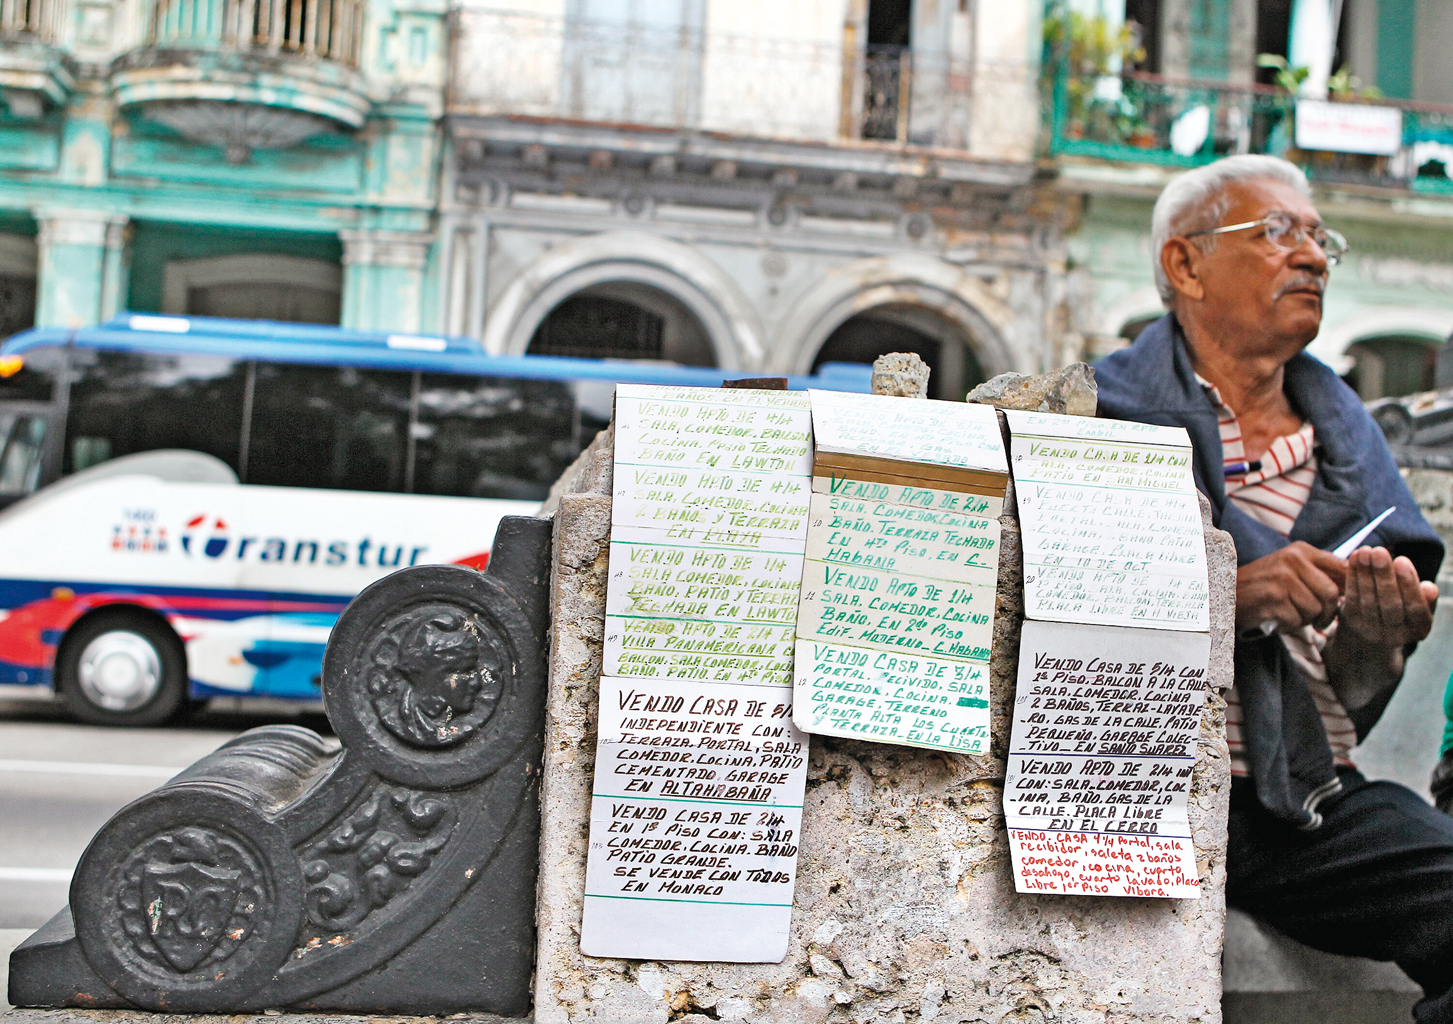 Transtur
BAÑOS. EN EL VEDADO
VENDO APTO DE 4/4
SALA, COMEDOR, BALCON
COCINA, PATIO TECHADO
BAÑO EN LAWTON
VENDO APTO DE 4/4
SALA, COMEDOR, COCINA
2 BAÑOS Y TERRAZA
EN PLAZA
VENDO APTO DE 1/4
SALA COMEDOR, COCINA
BAÑO, PATIO Y TERRAZA
TECHADA EN LAWTON
VENDO APTO DE 2/4
VILLA PANAMERICANA
BALCON, SALA COMEDOR, COCINA
BAÑO, PATIO. EN 4to PISO
VENDO CASA DE 5/4
INDEPENDIENTE CON:
TERRAZA, PORTAL, SALA
COMEDOR, COCINA, PATIO
CEMENTADO, GARAGE
EN ALTAHABANA
VENDO CASA DE 2/4
EN 1º PISO CON: SALA
COMEDOR, COCINA. BAÑO
PATIO GRANDE.
SE VENDE CON TODOS
EN MONACO
VENDO APTO DE 2/4
10 SALA. COMEDOR, COCINA
BAÑO. TERRAZA TECHADA
EN 4to PISO, EN C.
HABANA
VENDO APTO DE 1/4
11 SALA, COMEDOR, COCINA
BAÑO, EN 2do PISO
EDIF. MODERNO_C. HABANA
VENDO CASA DE 3/4
PORTAL, RECIVIDO, SALA
12 COMEDOR, COCINA.
GARAGE, TERRENO
PLANTA ALTA LOS CUARTOS
Y TERRAZA_EN LA LISA
EN 2do PISO, EN RPTO
VENDO CASA DE 1/4 CON
SALA, COMEDOR, COCINA
PATIO EN SAN MIGUEL
VENDO CASA DE 4/4
PUERTA CALLE,
PORTAL, SALA, COMEDOR
COCINA,
GARAGE, PLACA LIBRE
EN 10 DE OCT.
20 VENDO APTO DE 1/4 EN
PISO, SALA, COCINA, BAÑO
COMEDOR, BALCON, TERRAZA
PLACA LIBRE EN H VIEJA
VENDO CASA DE 5/4 CON
1º PISO, BALCON A LA CALLE
SALA, COMEDOR, COCINA
2 BAÑOS, TERRAZ-LAVADE
-RO, GAS DE LA CALLE, PATIO
PEQUEÑO, GARAGE COLEC-
TIVO_EN SANTO SUAREZ
VENDO APTO DE 2/4
CON: SALA-COMEDOR, COC
-INA, BAÑO. GAS DE LA
CALLE. PLACA LIBRE
EN EL CERRO
VENDO. CASA 4 1/4 Portal, sala
recibidor, saleta 2 baños
comedor, cocina, cuarto
desahogo, cuarto lavado, Placa
Libre 1er Piso Vibora.